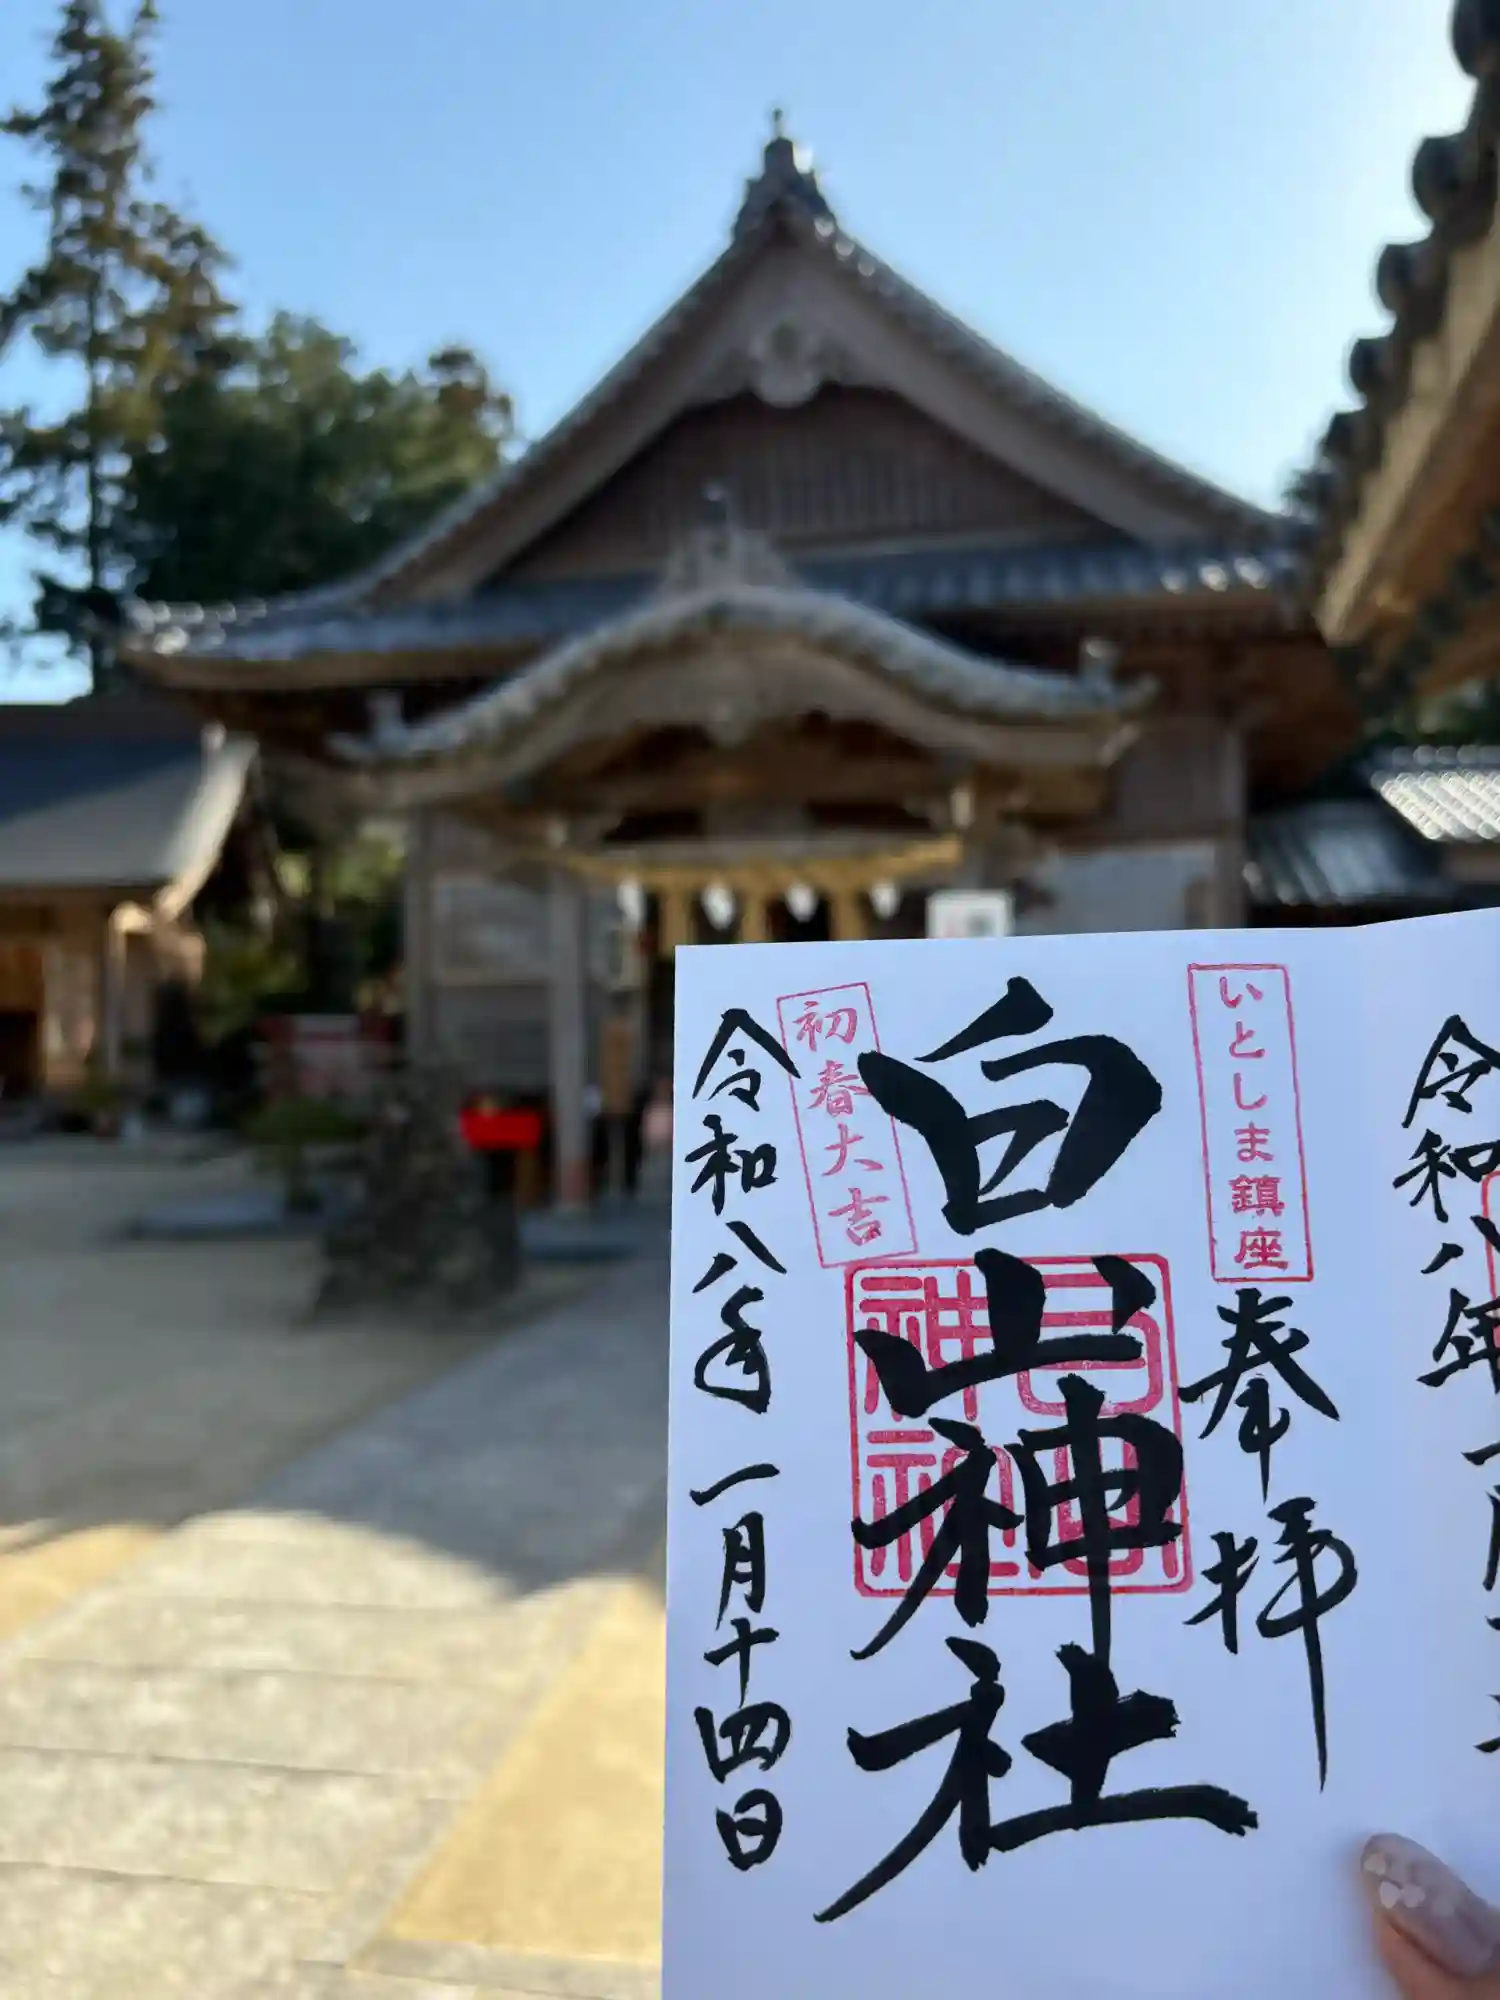 令和八年一月
いとしま鎮座
奉拝
白山神社
白山神社
初春大吉
令和八年一月十四日